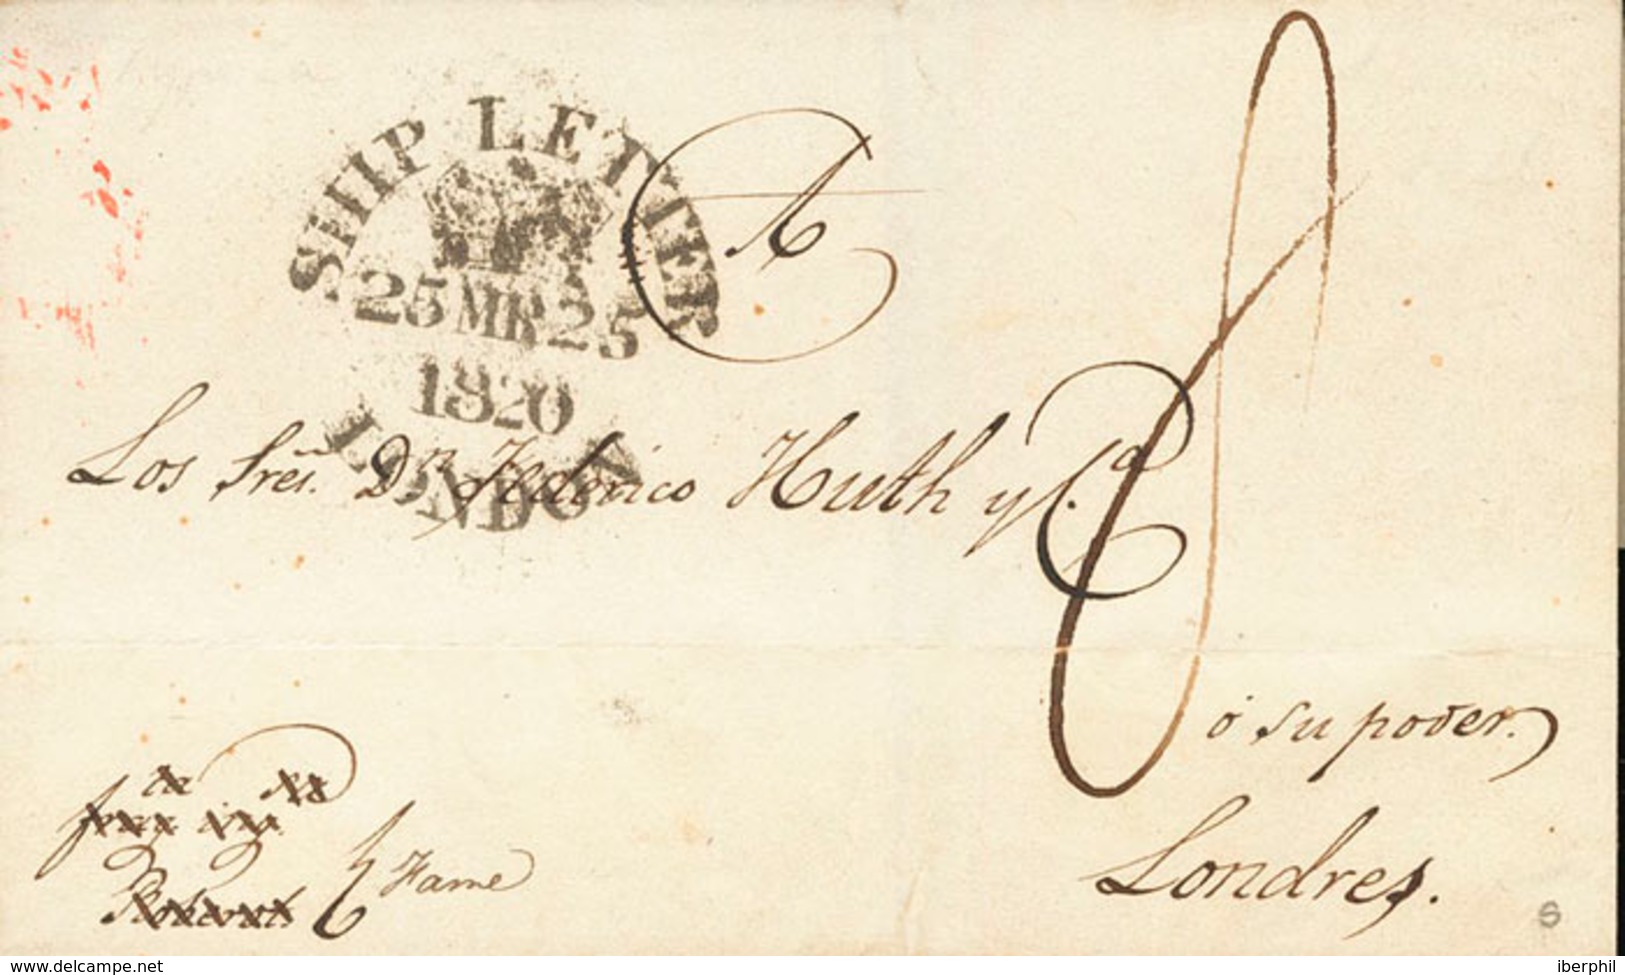 SHIP LETTER
25 MR 25
1820
LONDON
A
Los Sres. Dn Federico Huth y C.a
ó su poder.
Londres.
Fame
S
www.delcampe.net
iberphil